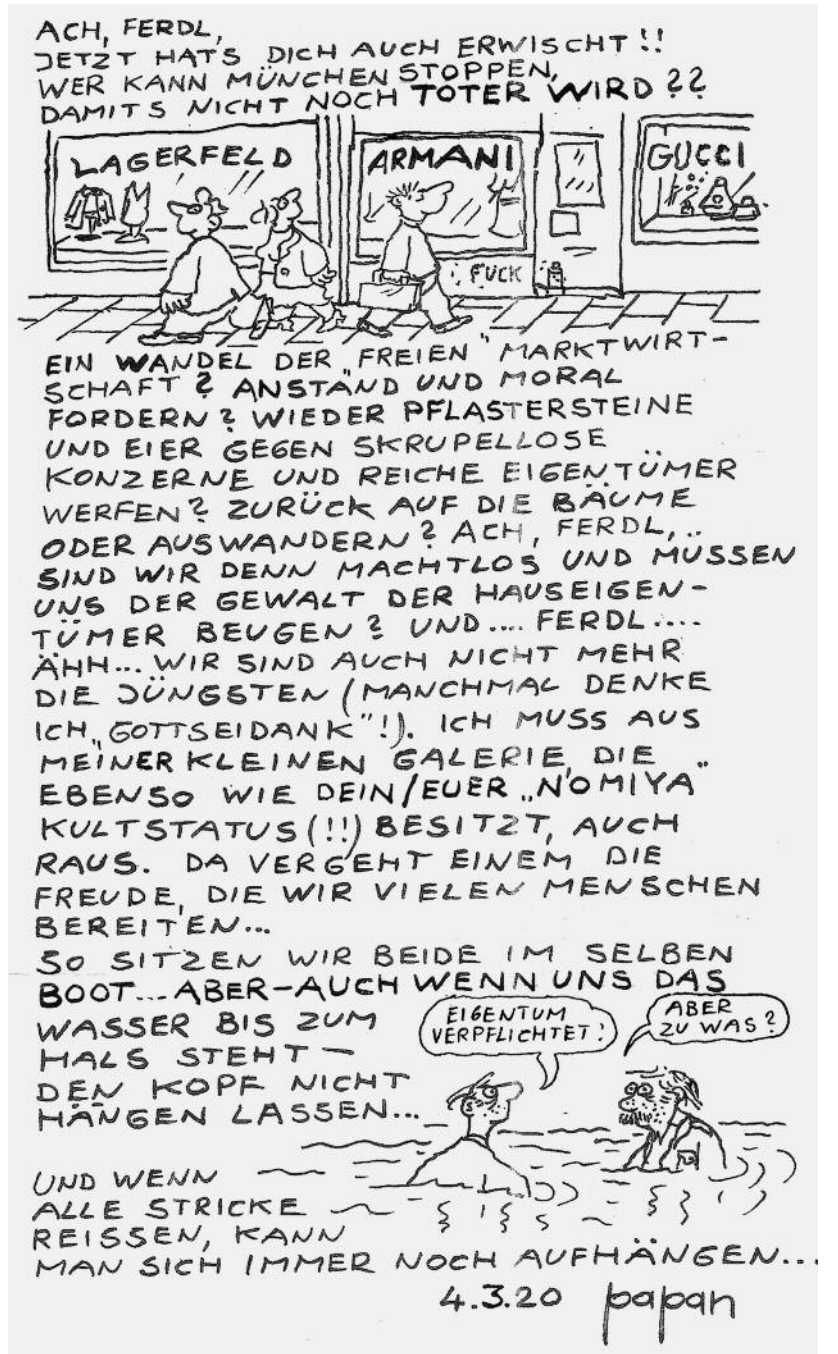 ACH, FERDL,
JETZT HATS DICH AUCH ERWISCHT!!
WER KANN MÜNCHEN STOPPEN,
DAMITS NICHT NOCH TOTER WIRD??
LAGERFELD
ARMANI
GUCCI
FUCK
EIN WANDEL DER „FREIEN" MARKTWIRT-
SCHAFT? ANSTAND UND MORAL
FORDERN? WIEDER PFLASTERSTEINE
UND EIER GEGEN SKRUPELLOSE
KONZERNE UND REICHE EIGENTÜMER
WERFEN? ZURÜCK AUF DIE BÄUME
ODER AUSWANDERN? ACH, FERDL,
SIND WIR DENN MACHTLOS UND MÜSSEN
UNS DER GEWALT DER HAUSEIGEN-
TÜMER BEUGEN? UND.... FERDL....
ÄHH... WIR SIND AUCH NICHT MEHR
DIE JÜNGSTEN (MANCHMAL DENKE
ICH „GOTTSEIDANK"!). ICH MUSS AUS
MEINER KLEINEN GALERIE, DIE
EBENSO WIE DEIN/EUER „NOMIYA"
KULTSTATUS(!!) BESITZT, AUCH
RAUS. DA VERGEHT EINEM DIE
FREUDE, DIE WIR VIELEN MENSCHEN
BEREITEN...
SO SITZEN WIR BEIDE IM SELBEN
BOOT... ABER-AUCH WENN UNS DAS
WASSER BIS ZUM
HALS STEHT -
DEN KOPF NICHT
HÄNGEN LASSEN...
EIGENTUM
VERPFLICHTET!
ABER
ZU WAS?
UND WENN
ALLE STRICKE
REISSEN, KANN
MAN SICH IMMER NOCH AUFHÄNGEN...
4.3.20 papan